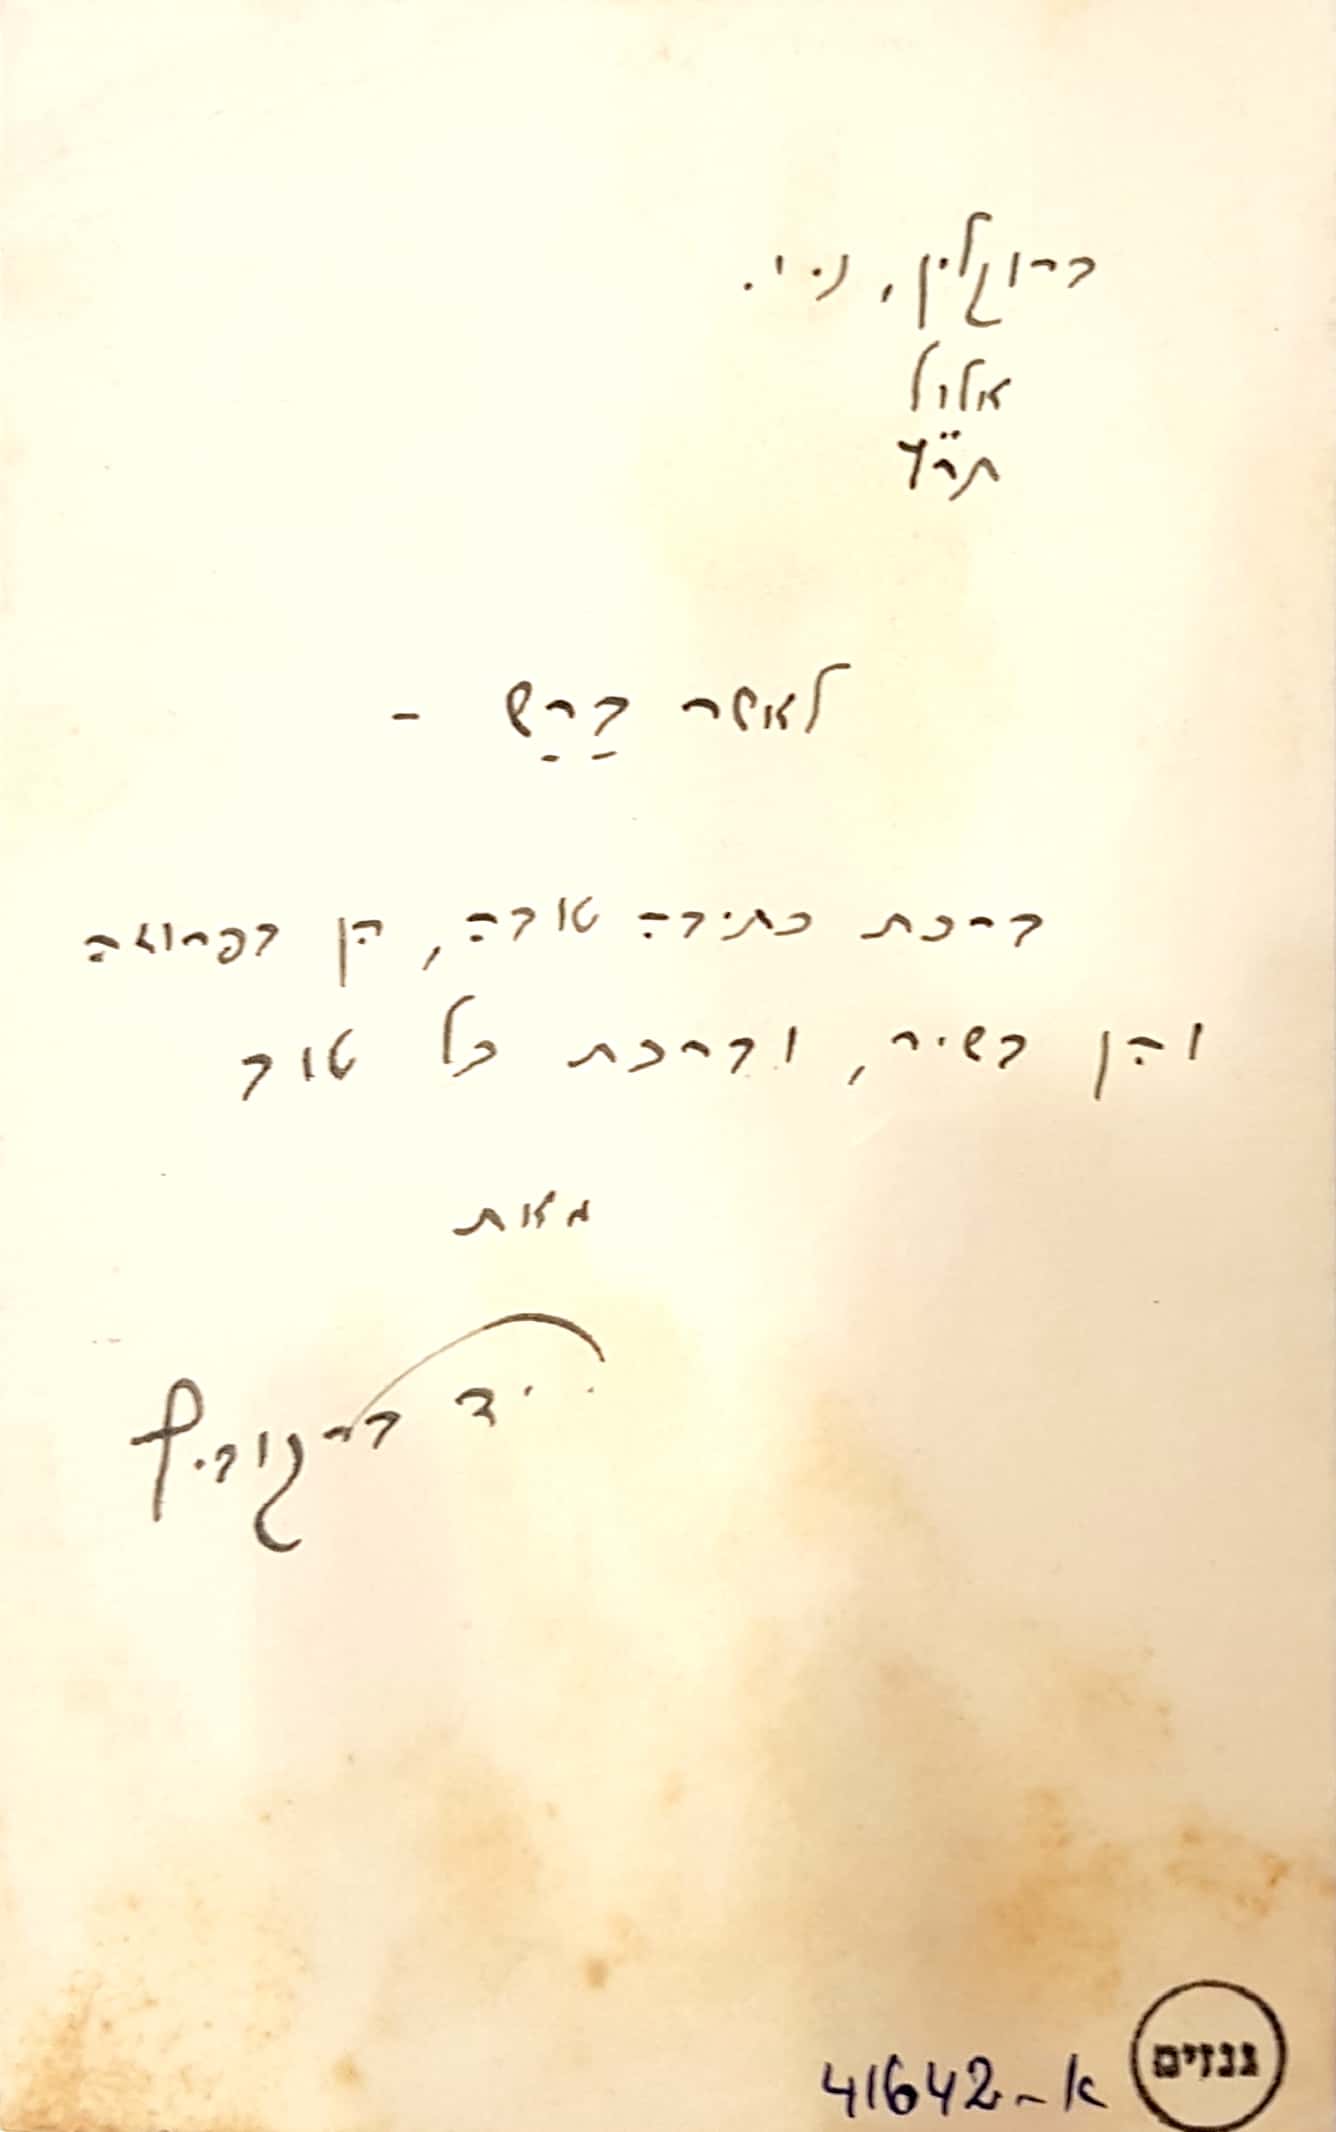 ברוקלין, נ. י.
אלול
תר״ץ
לאשר בַרַש –
ברכת כתיבה טובה, הן בפרוזה
והן בשיר, וברכת כל טוב
מאת
י. ד. ברקוביץ
גנזים
א - 41642